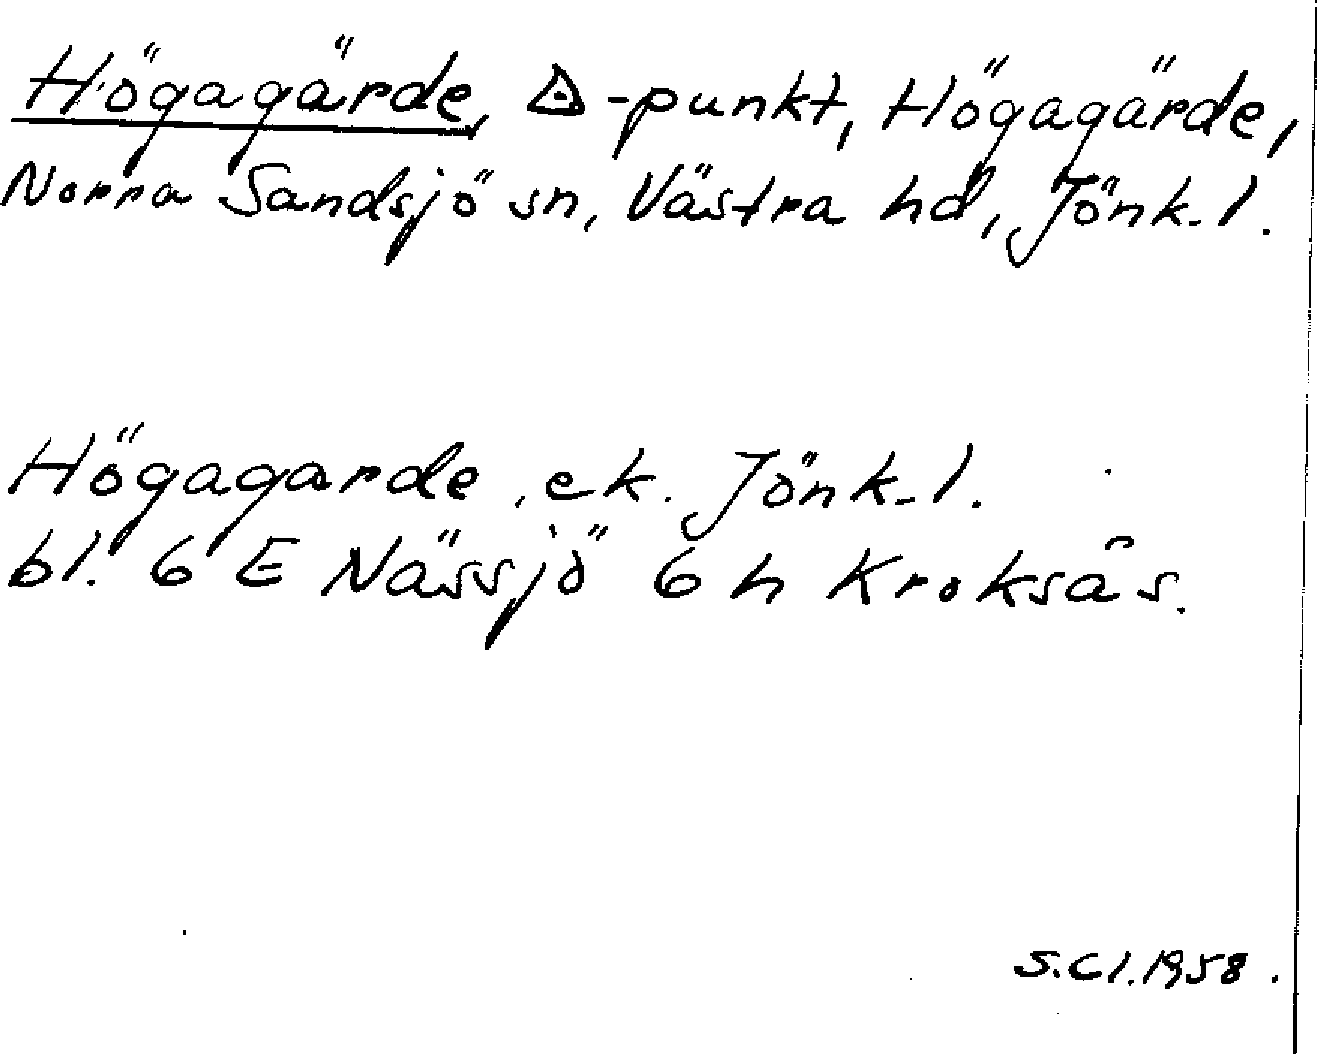 Högagärde, ◬-punkt, Högagärde,
Norra Sandsjö sn, Västra hd, Jönk. l.
Högagarde. ek. Jönk. l.
bl. 6 E Nässjö 6 h Kroksås.
S.Cl.1958.